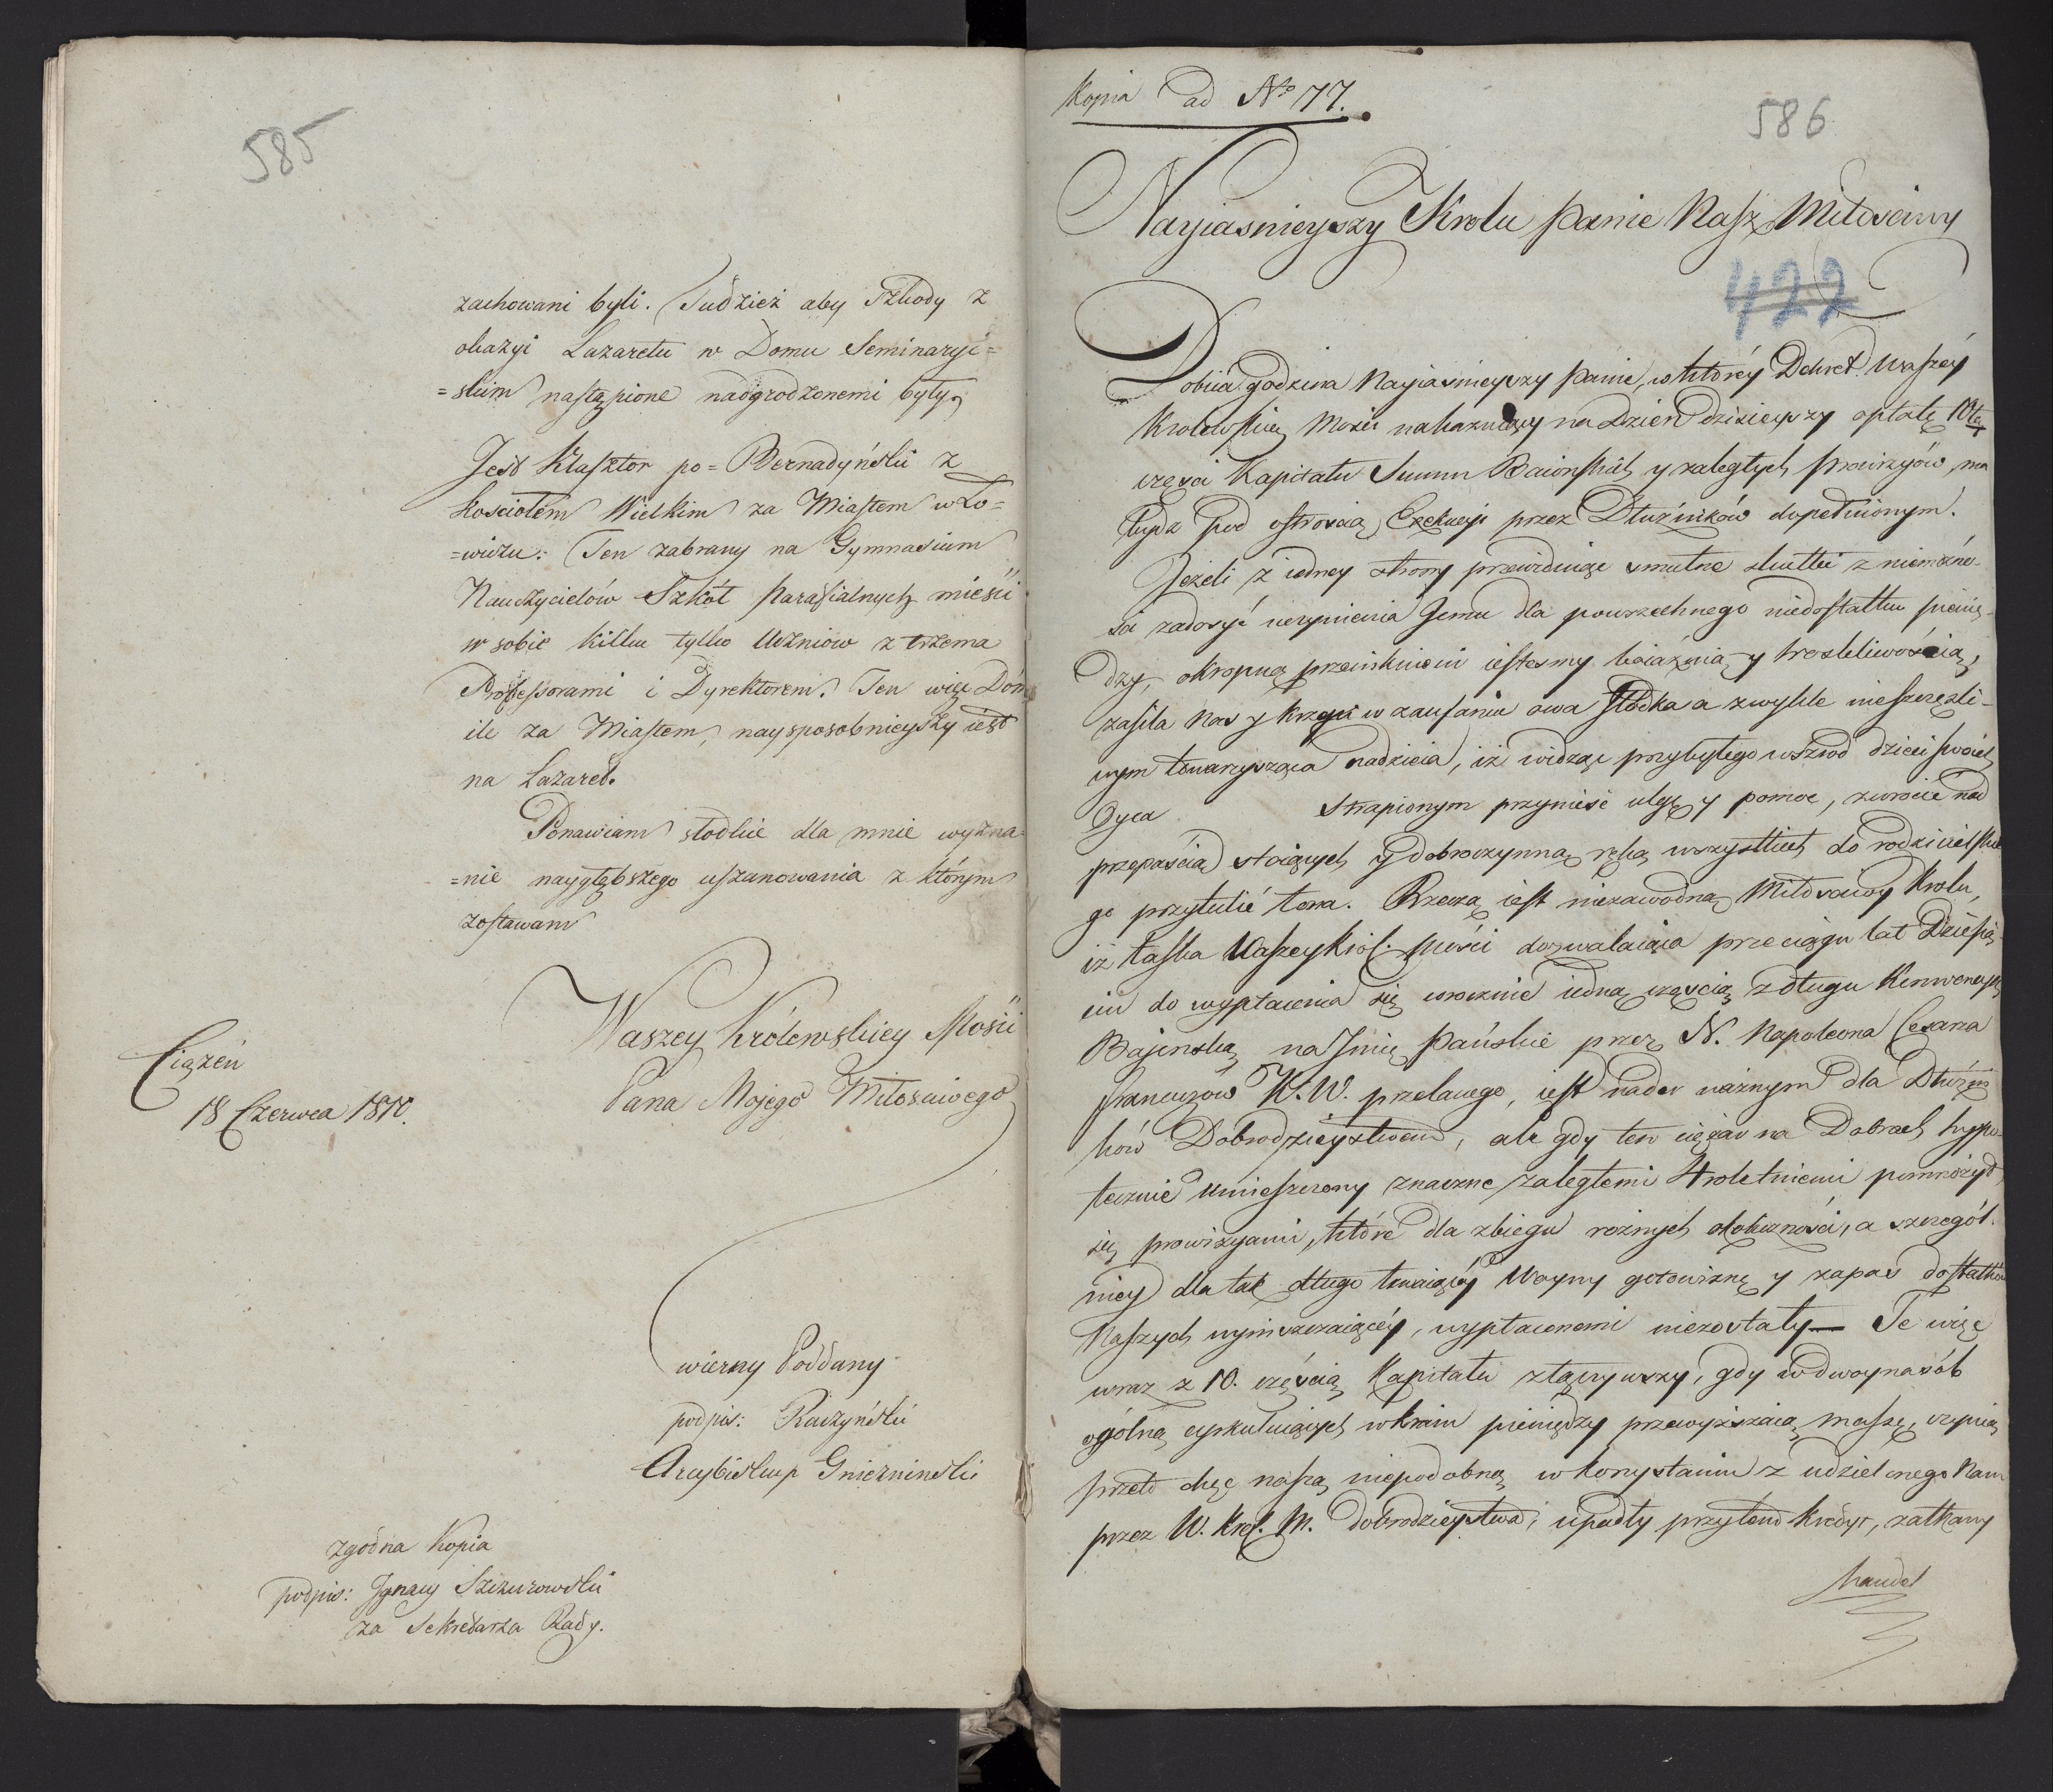 585
zachowani byli. Tudzież aby Szkody z
okazyi Lazaretu w Domu Seminaryi=
=skim nastąpione nadgrodzonemi były.
Jest Klasztor po=Bernadyński z
Kosciołem Wielkim za Miastem w Ło=
=wiczu: Ten zabrany na Gymnasium
Nauczycielów Szkół Parafialnych mieści
w sobie kilku tylko Uczniów z trzema
Professorami i Dyrektorem. Ten więc Dóm
ile za Miastem, naysposobnieyszy iest
na Lazaret.
Ponawiam słodkie dla mnie wyzna=
=nie naygłębszego uszanowania z którym
zostawam
Waszey Królewskiey Mości
Pana Mojego Miłościwego
Ciążeń
18 Czerwca 1810.
wierny Poddany
podpis: Raczyński
Arcybiskup Gnieznieński
zgodna Kopia
podpis: Ignacy Szczurowski
za Sekretarza Rady.
Kopia ad No 177.
586
Nayiasnieyszy Krolu Panie Nasz Miłosciwy
422
Dobiia godzina Nayiasnieyszy Panie, w którey Dekret Waszéy
Krolewskiey Mości nakazuiący na Dzień dzisieyszy opłatę 10tey
częsci Kapitału Summ Baionskich y zaległych prowizyów, ma
bydz pod ostroscią Exekucyi przez Dłużników dopełnionym.
Jeżeli z iedney strony przewiduiąc smutne skutki z niemożno-
sci zadosyć uczynienia Jemu dla powszechnego niedostatku pienię-
dzy, okropną przeniknieni iestesmy boiaźnią y troskliwością,
zasila nas y krzepi w zaufaniu owa słodka a zwykle nieszczęśli-
wym towarzysząca nadzieia, iż widząc przybyłego wszrod dzieci swoich
Oyca strapionym przynieść ulgę y pomoc, zwrocić nad
przepaścią stoiących y dobroczynną ręką wszystkich do rodzicielskie
go przytulić łona. Rzeczą iest niezawodną Miłosciwy Krolu,
iż łaska Waszey Król. Mości dozwalaiąca przeciągu lat Dziesię-
ciu do wypłacenia się corocznie iedną częścią z długu Konwencyą
Bajonską na Jmię Pańskie przez N. Napoleona Cesarza
Francuzów K. W. przelanego, iest nader ważnym dla Dłużni
ków Dobrodzieystwem, ale gdy ten ciężar na Dobrach hypo-
tecznie umieszczony znacznie zaległemi 4roletniemi pomnożył
się prowizyami, które dla zbiegu rożnych okoliczności, a szczegól-
niey dla tak długo trwaiącéy Woyny gotowiznę y zapas dostatków
Naszych wyniszczaiącéy, wypłaconemi niezostały — Te więc
wraz z 10. częścią Kapitału złączywszy, gdy w dwoynasób
ogólną cyrkuluiących w kraiu pieniędzy przewyższaią massę, czynią
przeto chęć naszą niepodobną w korzystaniu z udzielonego Nam
przez W. Krol. M. dobrodzieystwa, upadły przytem kredyt, zatkany
handel